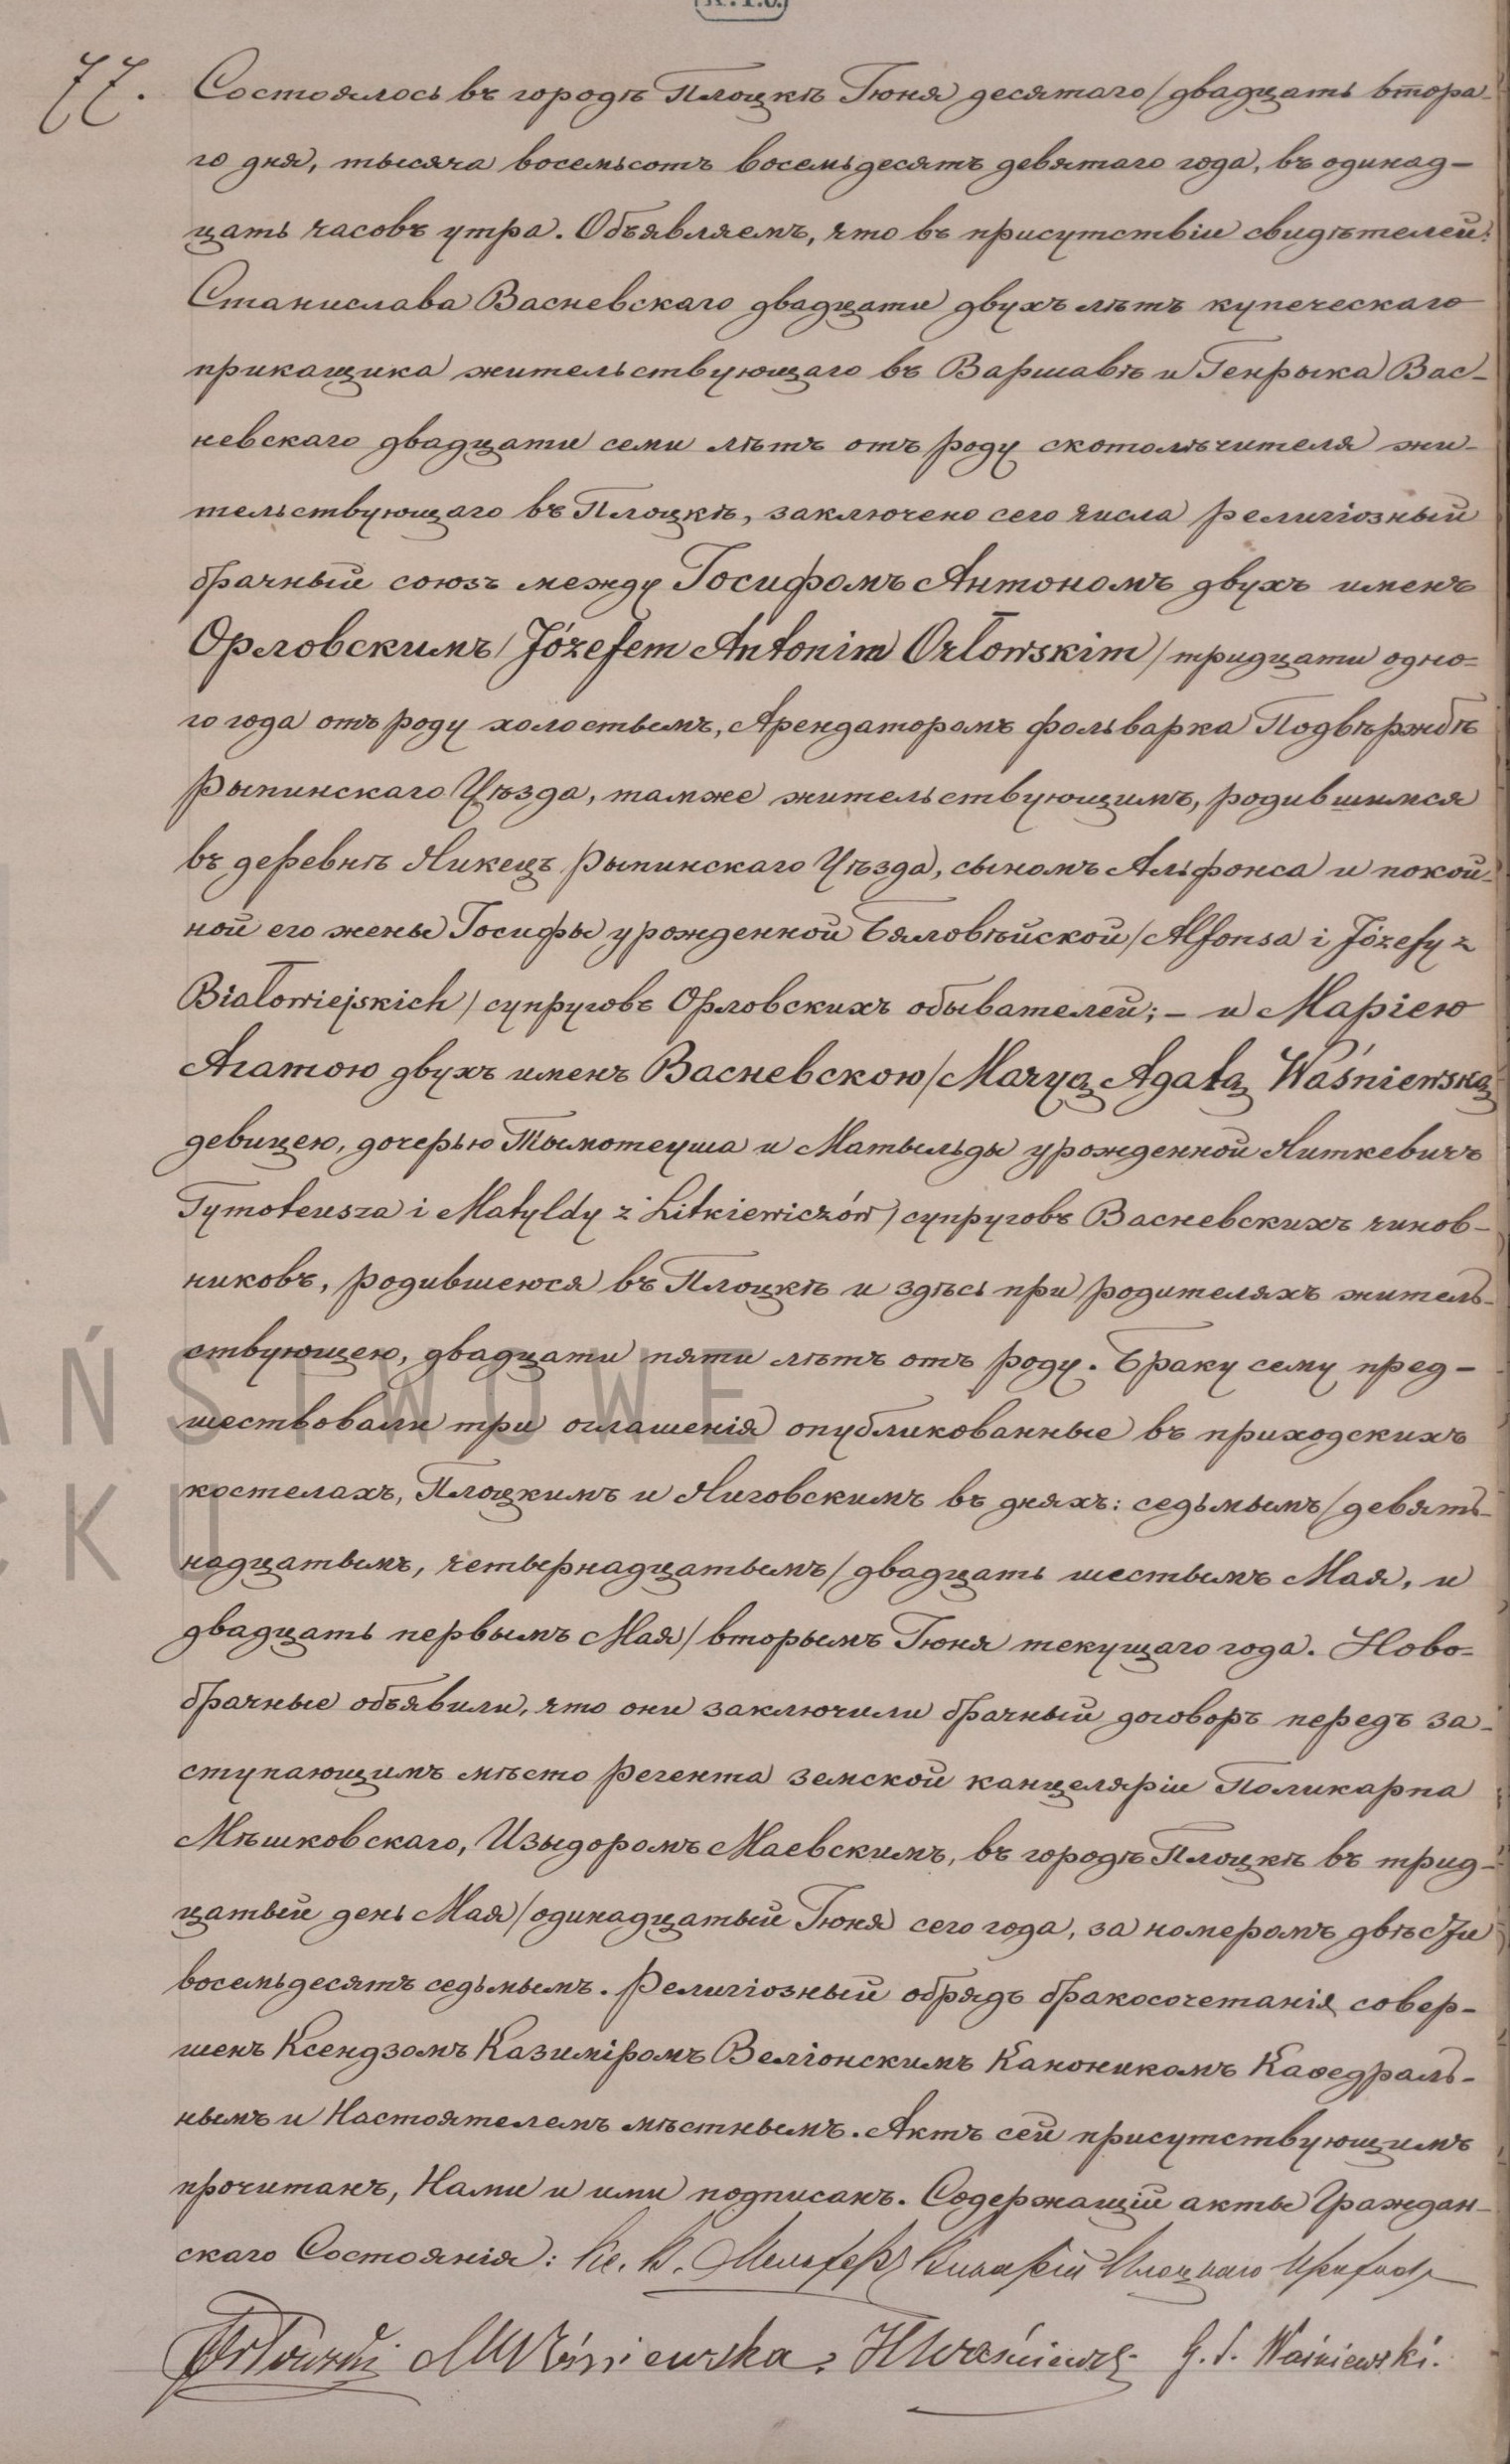 77. Состоялось въ городѣ Плоцкѣ Іюня десятаго/двадцать втора-
го дня, тысяча восемьсотъ восемьдесятъ девятаго года, въ одинад-
цать часовъ утра. Объявляемъ, что въ присутствіи свидѣтелей:
Станислава Васневскаго двадцати двухъ лѣтъ купеческаго
прикащика жительствующаго въ Варшавѣ и Генрыка Вас-
невскаго двадцати семи лѣтъ отъ роду скотолѣчителя жи-
тельствующаго въ Плоцкѣ, заключено сего числа религіозный
брачный союзъ между Іосифомъ Антономъ двухъ именъ
Орловскимъ/Józefem Antonim Orłowskim/тридцати одно-
го года отъ роду холостымъ, Арендаторомъ фольварка Подвѣржбѣ
Рыпинскаго Уѣзда, тамже жительствующимъ, родившимся
въ деревнѣ Ликецъ Рыпинскаго Уѣзда, сыномъ Альфонса и покой-
ной его жены Іосифы урожденной Бяловѣйской/Alfonsa i Józefy z
Białowiejskich/супруговъ Орловскихъ обывателей;- и Маріею
Агатою двухъ именъ Васневскою/Maryą Agatą Waśniewską
девицею, дочерью Тымотеуша и Матыльды урожденной Литкевичъ
Tymoteusza i Matyldy z Litkiewiczów/супруговъ Васневскихъ чинов-
никовъ, родившеюся въ Плоцкѣ и здѣсь при родителяхъ житель-
ствующею, двадцати пяти лѣтъ отъ роду. Браку сему пред-
шествовали три оглашенія опубликованные въ приходскихъ
костелахъ, Плоцкимъ и Лиговскимъ въ дняхъ: седьмымъ/девять-
надцатымъ, четырнадцатымъ/двадцать шестымъ Мая, и
двадцать первымъ Мая/вторымъ Іюня текущаго года. Ново-
брачные объявили, что они заключили брачный договоръ передъ за-
ступающимъ мѣсто регента земской канцеляріи Поликарпа
Мѣшковскаго, Изыдоромъ Маевскимъ, въ городѣ Плоцкѣ въ трид-
цатый день Мая/одинадцатый Іюня сего года, за номеромъ двѣсти
восемьдесятъ седьмымъ. Религіозный обрядъ бракосочетанія совер-
шенъ Ксендзомъ Казиміромъ Веліонскимъ Каноникомъ Каѳедраль-
нымъ и Настоятелемъ мѣстнымъ. Актъ сей присутствующимъ
прочитанъ, Нами и ими подписанъ. Содержащій акты Граждан-
скаго Состоянія: Кс. Викарій Плоцкаго Прихода
JOrłowski MWaśniewska. HWaśniewski G. S. Waśniewski.